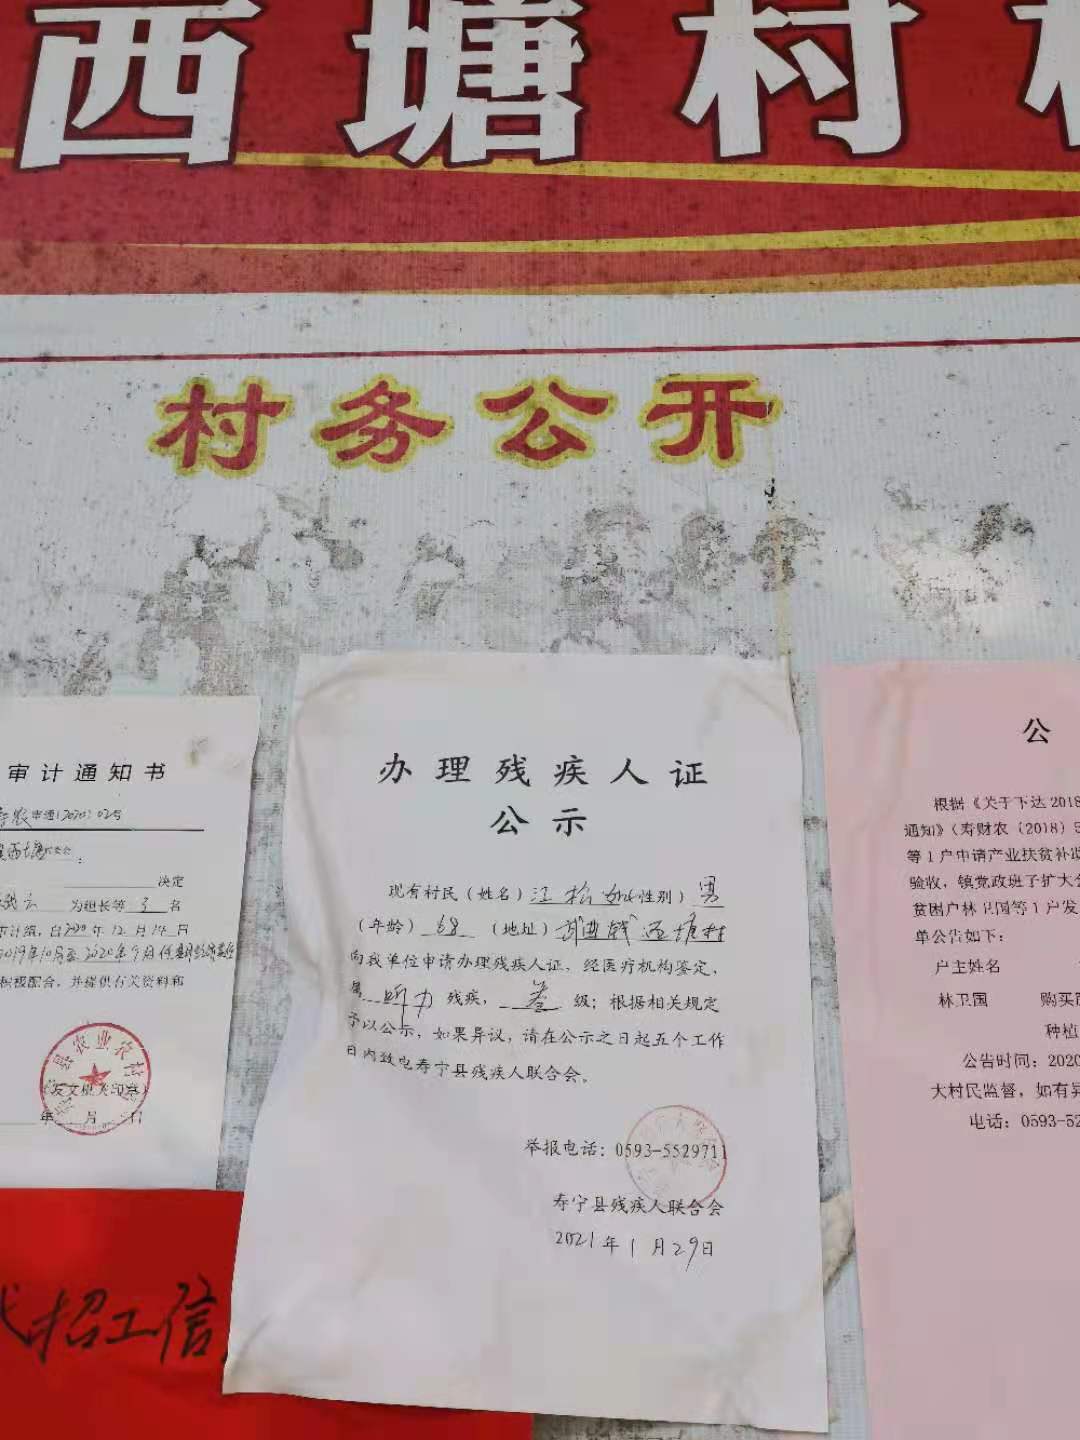 西塘村
村务公开
审计通知书
农审通(2020)02号
决定
为组长等3名
审计组，自2020年12月14日
2019年10月至2020年9月任期
积极配合，并提供有关资料和
县农业农村
(发文机关印章)
年 月 日
招工信
办理残疾人证
公示
现有村民（姓名）江松如（性别）男
（年龄）68（地址）武曲镇西塘村
向我单位申请办理残疾人证，经医疗机构鉴定，
属 听力 残疾， 叁 级；根据相关规定
予以公示，如果异议，请在公示之日起五个工作
日内致电寿宁县残疾人联合会。
举报电话：0593-5529711
寿宁县残疾人联合会
2021年1月29日
公
根据《关于下达2018
通知》（寿财农（2018）5
等1户申请产业扶贫补助
验收，镇党政班子扩大会
贫困户林卫国等1户发
单公告如下：
户主姓名
林卫国 购买
种植
公告时间：2020
大村民监督，如有异
电话：0593-52